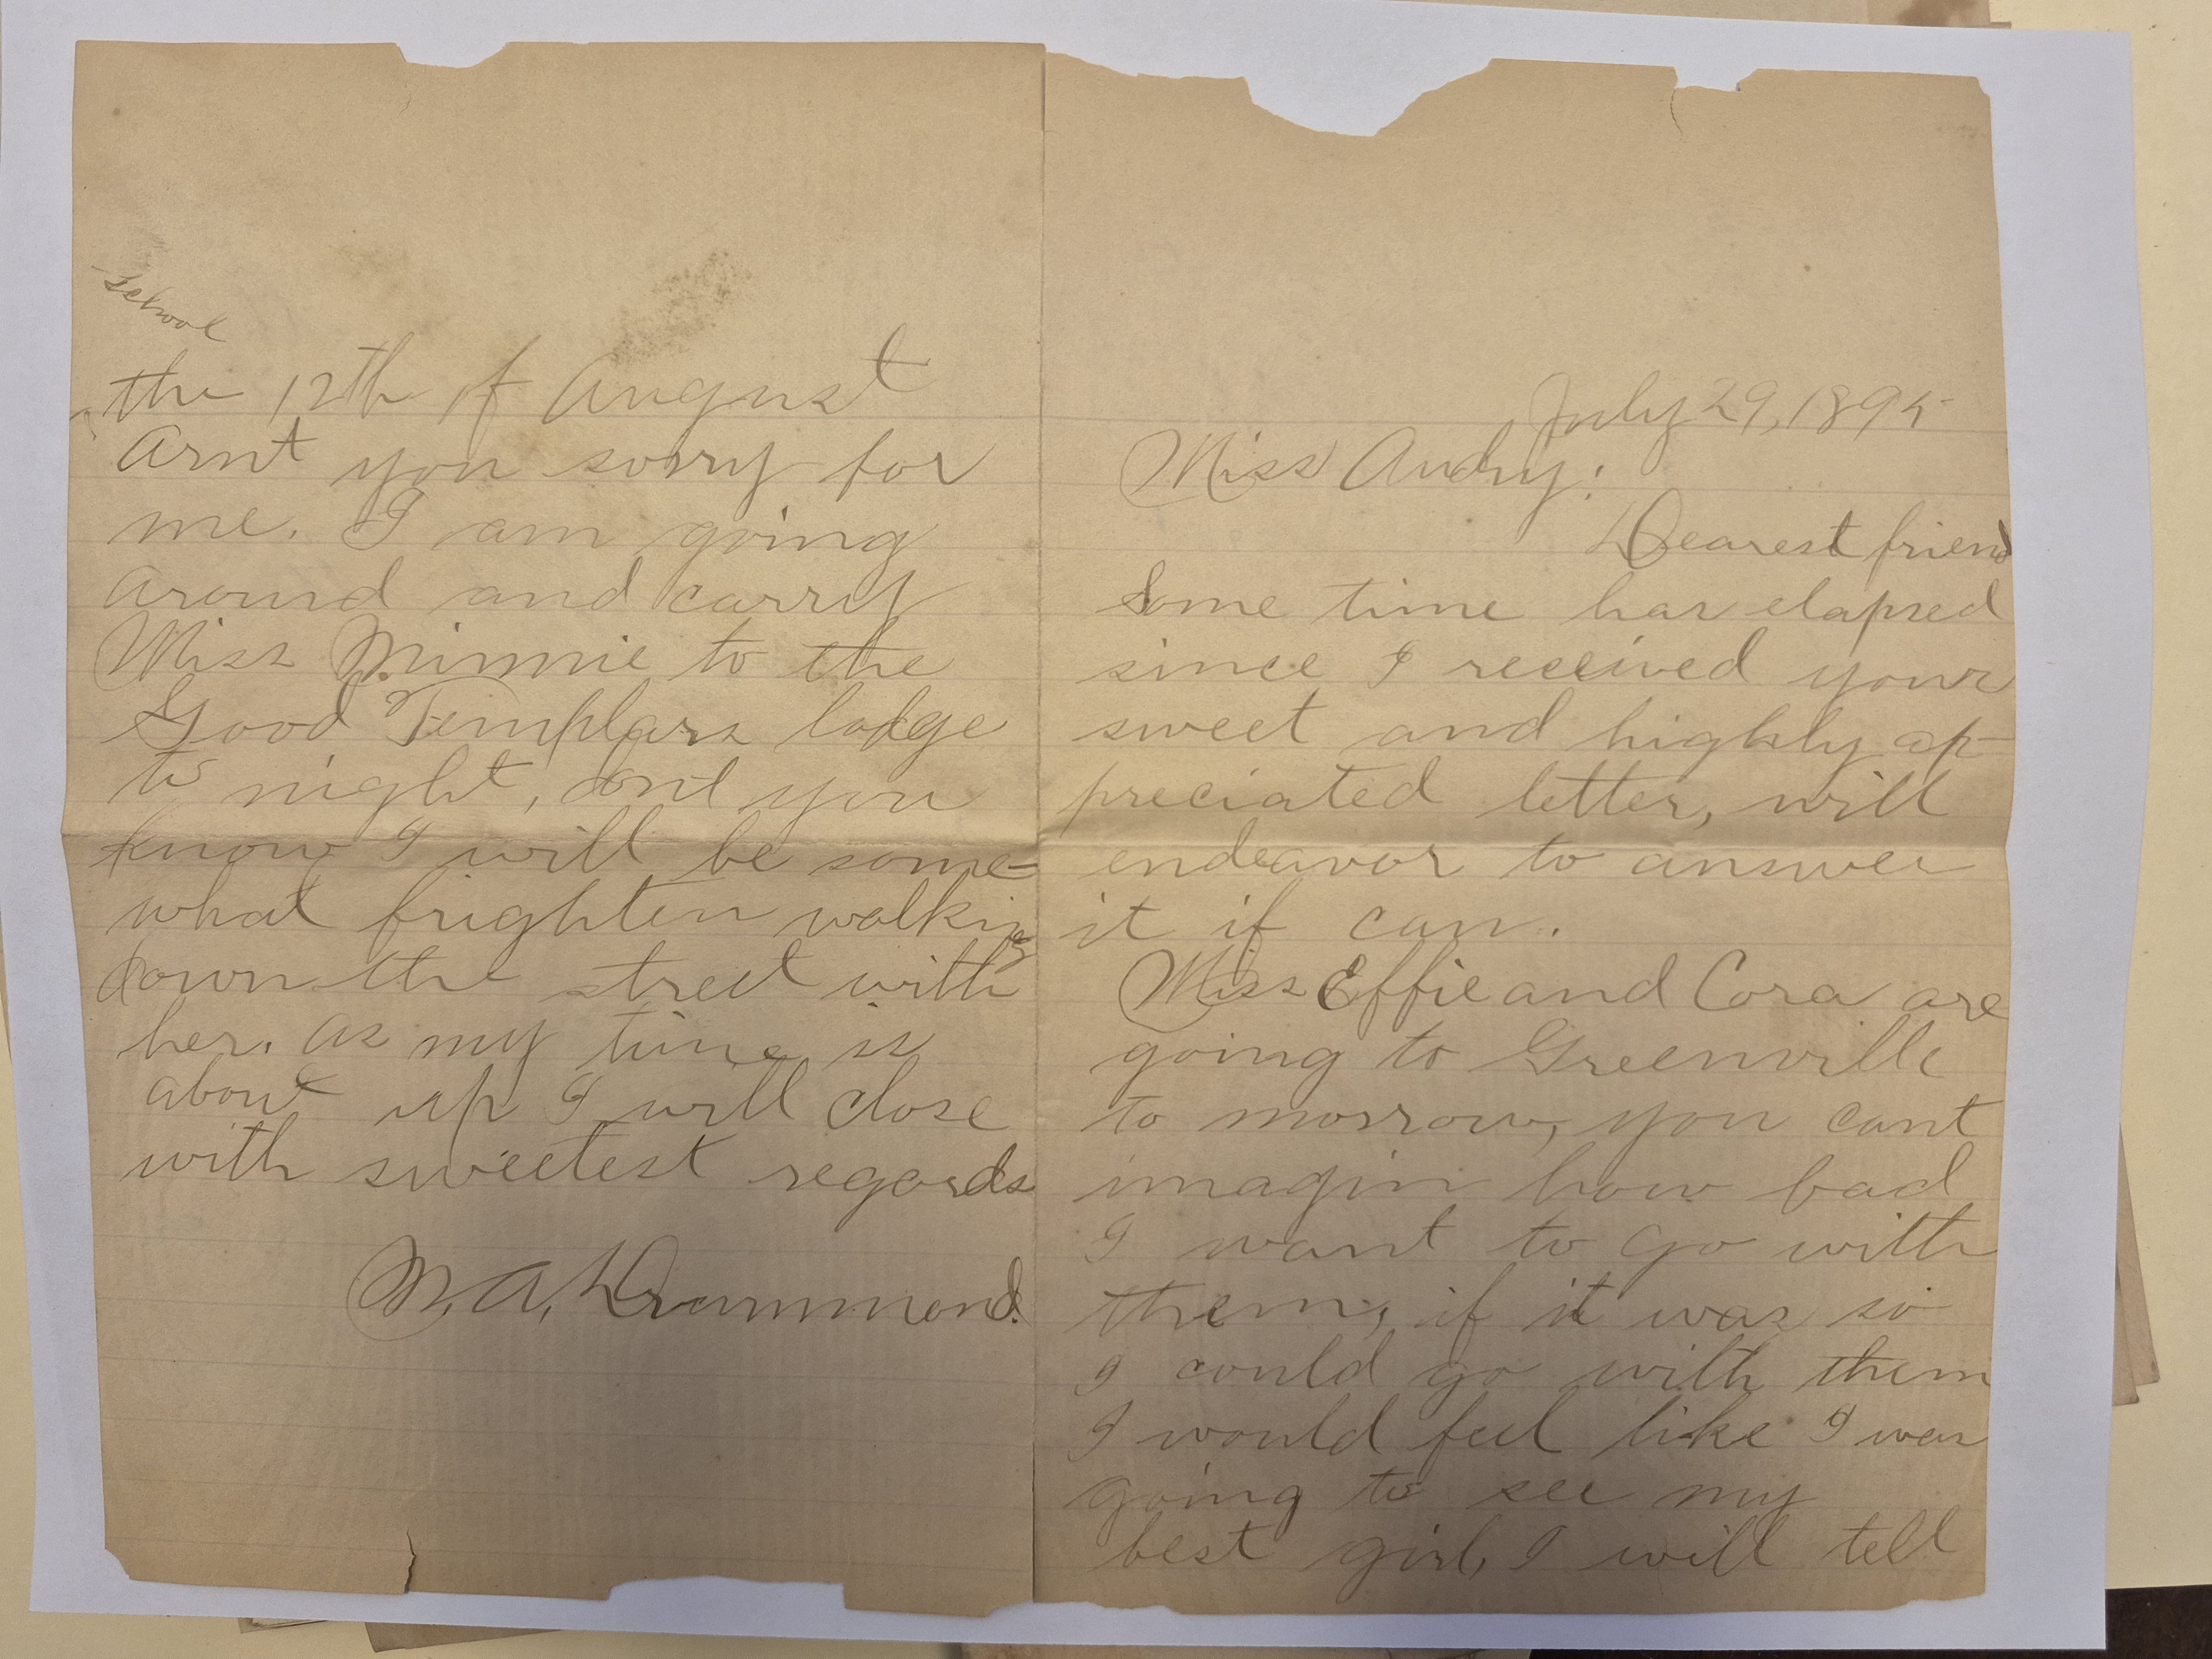 July 29, 1895
Miss Audry:
Dearest friend
Some time has elapsed
since I received your
sweet and highly ap-
preciated letter, will
endeavor to answer
it if can.
Miss Effie and Cora are
going to Greenville
to morrow, you cant
imagin how bad
I want to go with
them, if it was so
I could go with them
I would feel like I was
going to see my
best girl, I will tell
school
the 12th of August
Arnt you sorry for
me. I am going
around and carry
Miss Minnie to the
Good Templars lodge
to night, dont you
know I will be some-
what frighten walking
down the street with
her. As my time is
about up I will close
with sweetest regards
M. A. Drummond.